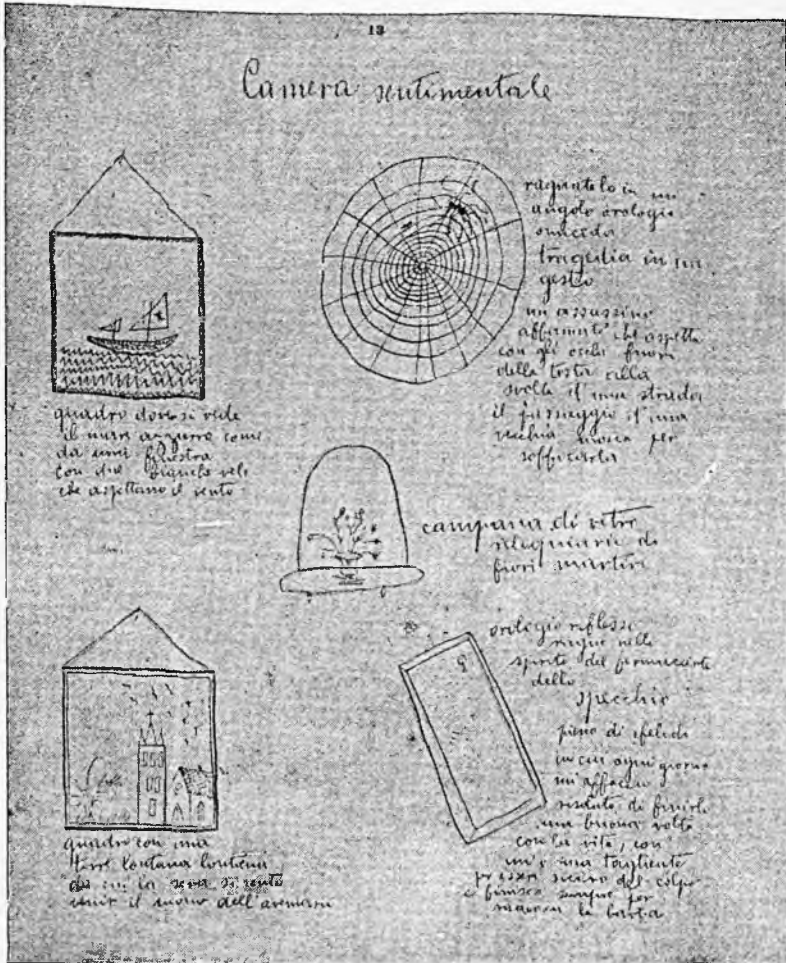 13
Camera sentimentale
ragnatelo in un
angolo orologio
tragedia in un
gesto
un assassino
affermate che aspetta
con gli occhi fuori
della testa alla
svolta d'una strada
il passaggio d'una
vecchia mosca per
soffocarla
quadro dove si vede
il mare azzurro come
da una finestra
con due bianche vele
che aspettano il vento
campana di vetro
reliquiario di
fiori martiri
orologio riflesso
nello
spirito del
dello
specchio
pieno di efelidi
in cui ogni giorno
m'affaccio
risoluto di finirla
una buona volta
con la vita, con
una tagliente
per esser sicuro del colpo
e finisco sempre per
la barba
quadro con una
torre lontana lontana
da cui la sera si sente
venir il suono dell'avemaria